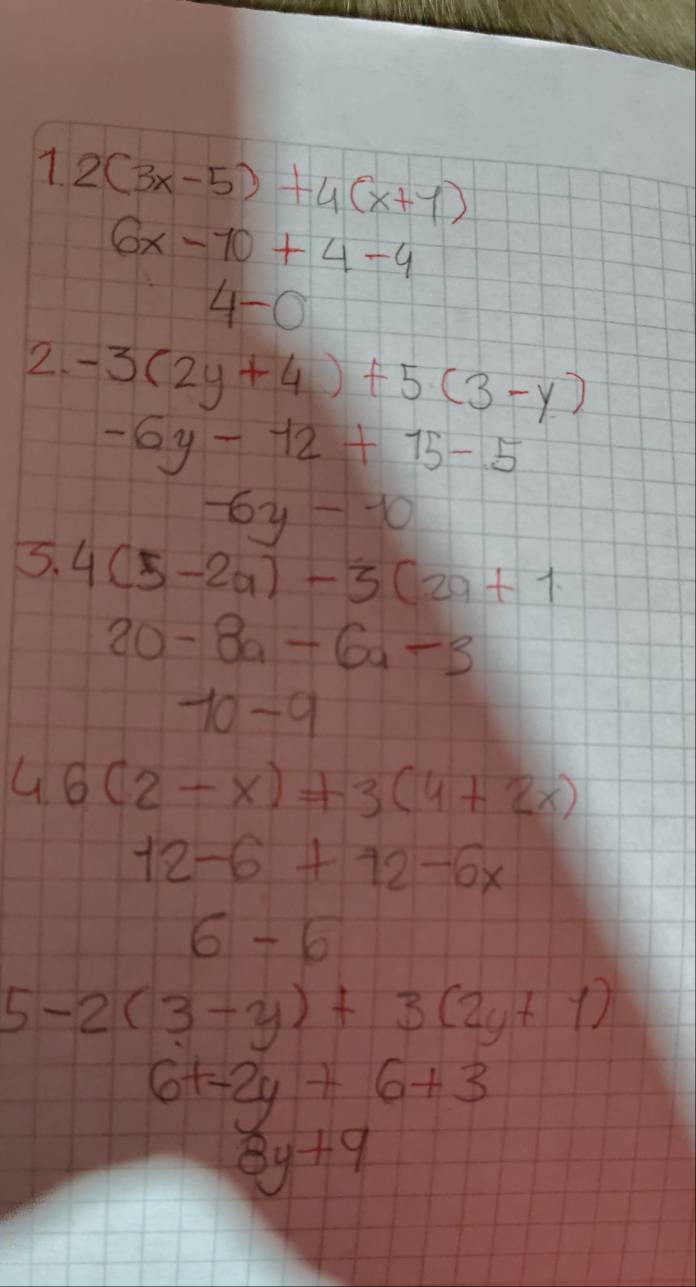 1. 2(3x-5) + 4(x+1)
6x - 10 + 4 - 4
4-0
2. -3(2y+4) + 5(3-y)
-6y - 12 + 15 - 5
-6y - 10
3. 4(5-2a) - 3(2a+1
20 - 8a - 6a - 3
10 - 9
4. 6(2-x) + 3(4+2x)
12-6 + 12-6x
6 - 6
5 -2(3-y) + 3(2y+1)
6+-2y + 6+3
8y+9